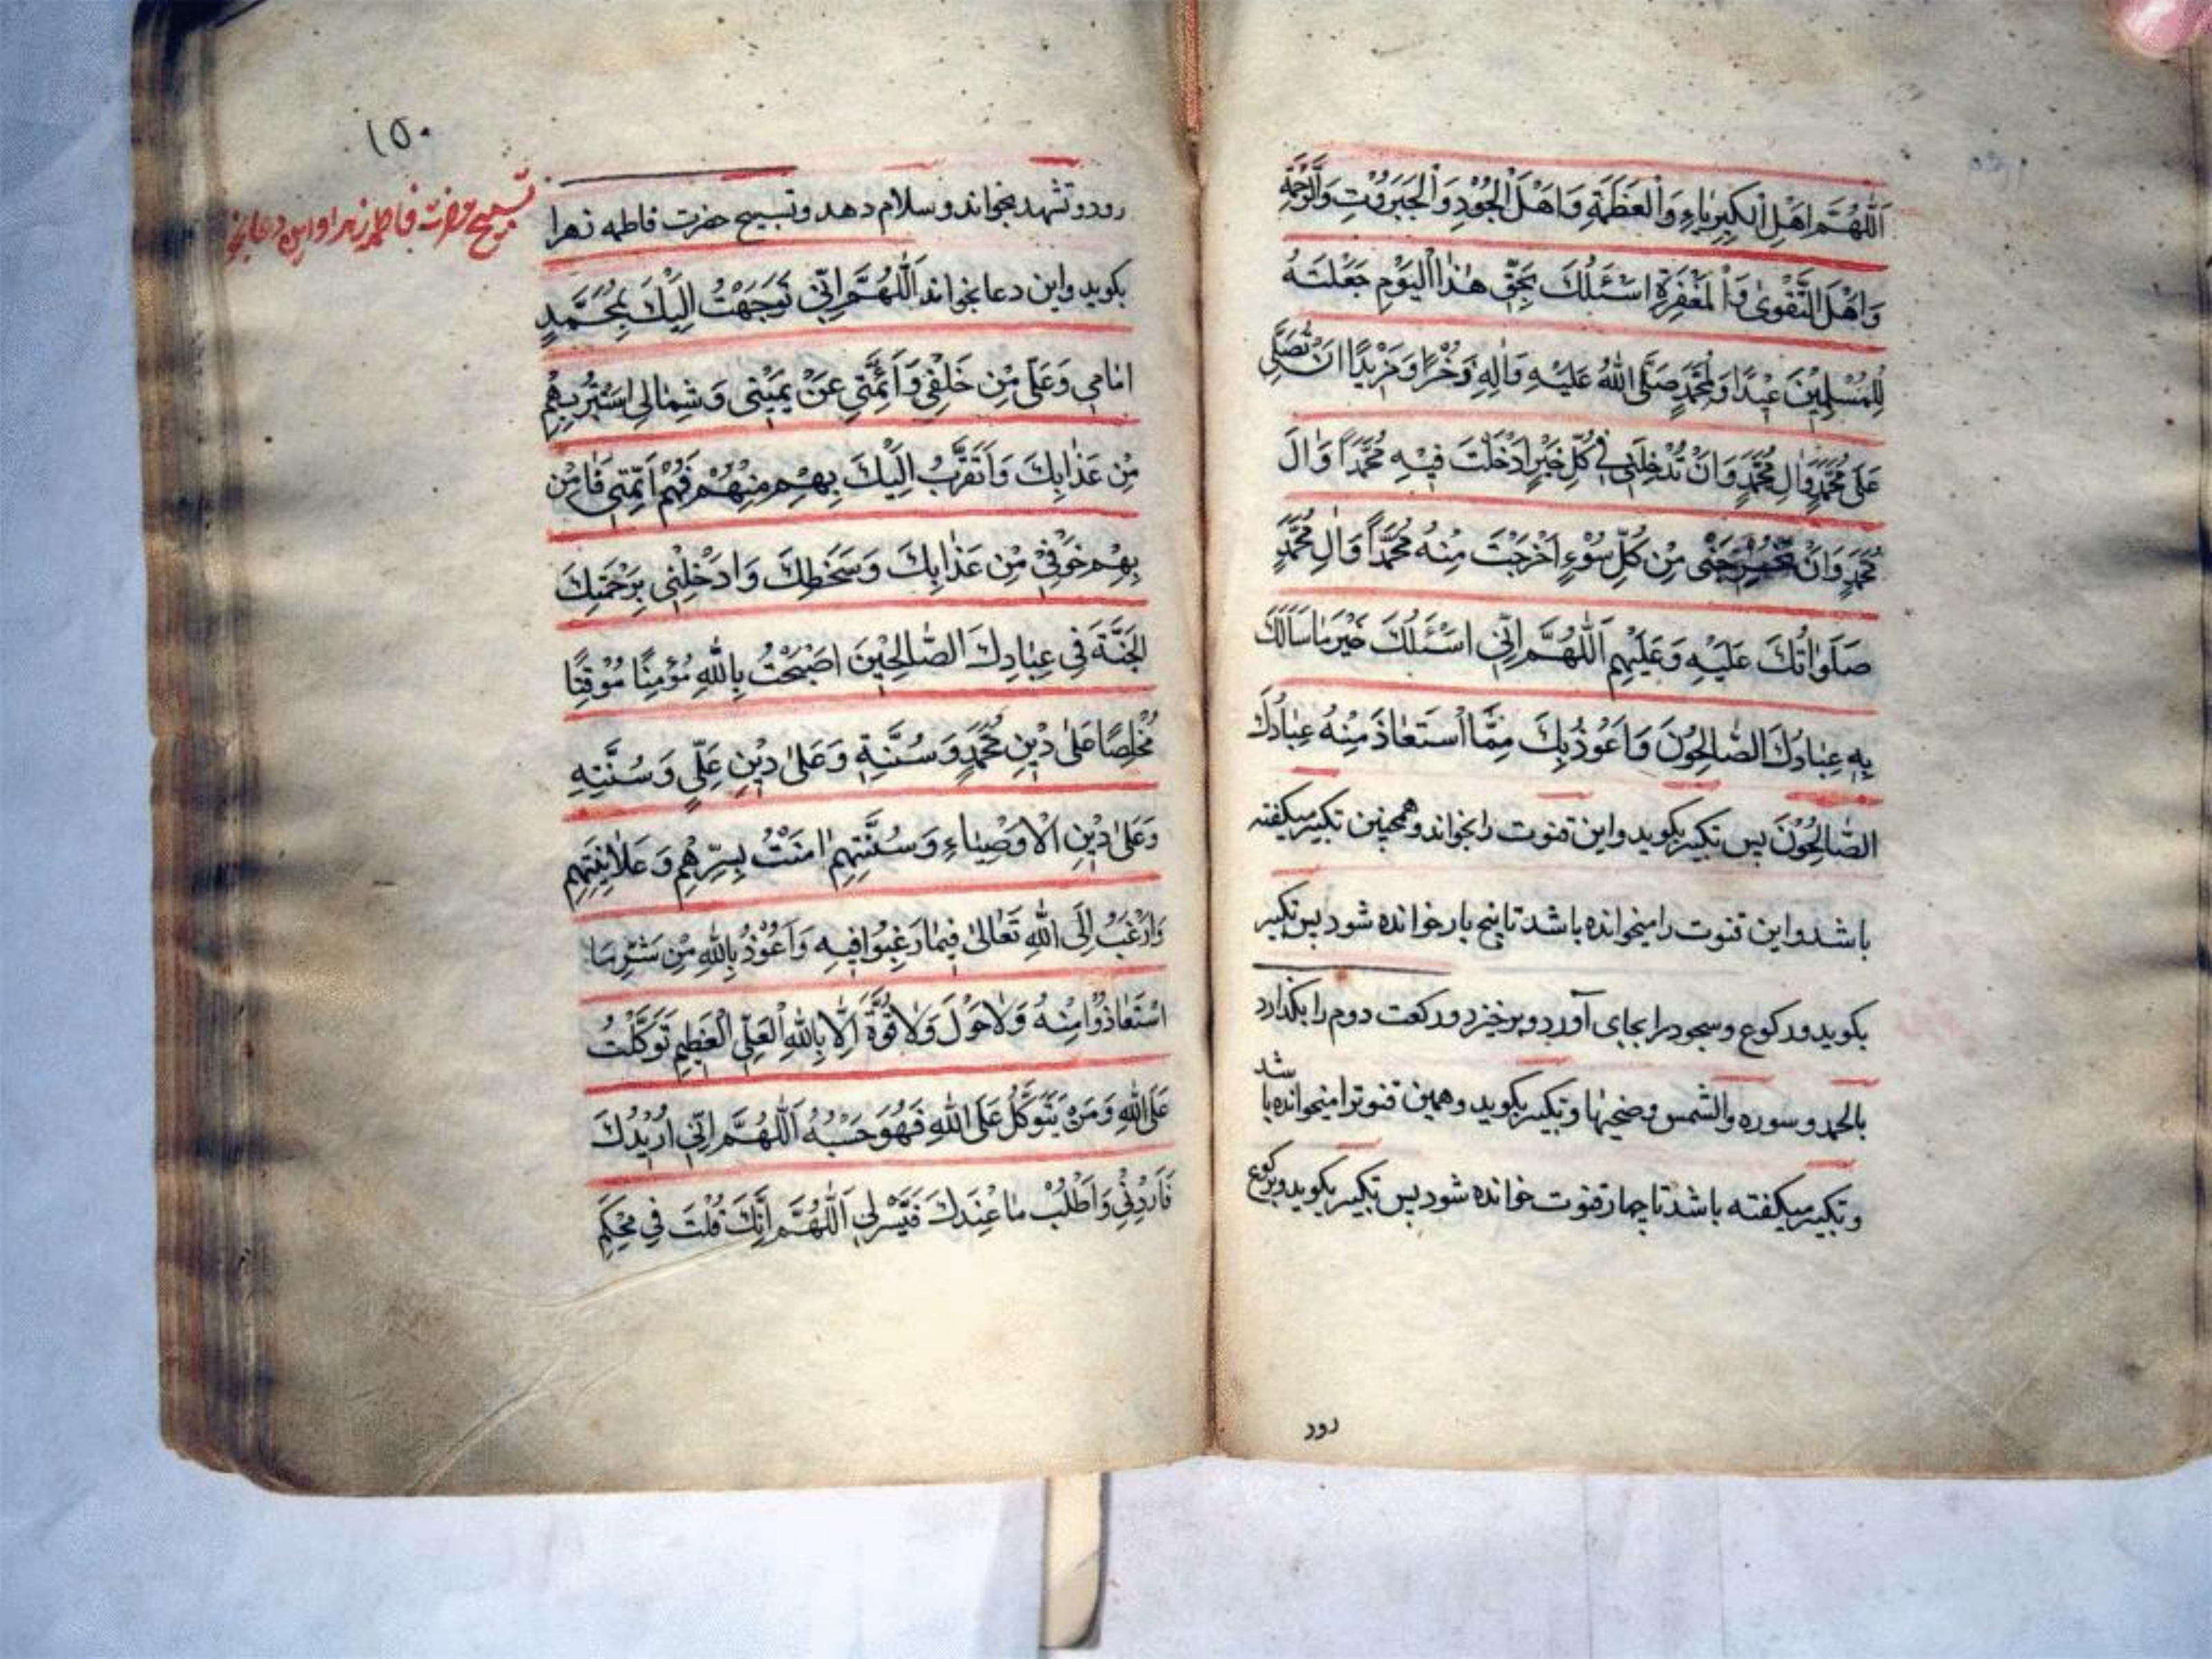 اَللّٰهُمَّ اَهْلَ الْكِبْرِيٰاءِ وَالْعَظَمَةِ وَاَهْلَ الْجُوْدِ وَالْجَبَرُوْتِ وَالرَّحْمَةِ
وَاَهْلَ التَّقْوىٰ وَالْمَغْفِرَةِ اَسْئَلُكَ بِحَقِّ هٰذَا الْيَوْمِ جَعَلْتَهُ
لِلْمُسْلِمِيْنَ عِيْدًا وَلِمُحَمَّدٍ صَلَّى اللّٰهُ عَلَيْهِ وَاٰلِهِ ذُخْرًا وَمَزِيْدًا اَنْ تُصَلِّيَ
عَلىٰ مُحَمَّدٍ وَاٰلِ مُحَمَّدٍ وَاَنْ تُدْخِلَنِي فِي كُلِّ خَيْرٍ اَدْخَلْتَ فِيْهِ مُحَمَّدًا وَاٰلَ
مُحَمَّدٍ وَاَنْ تُخْرِجَنِى مِنْ كُلِّ سُوْءٍ اَخْرَجْتَ مِنْهُ مُحَمَّدًا وَاٰلِ مُحَمَّدٍ
صَلَوٰاتُكَ عَلَيْهِ وَعَلَيْهِم اَللّٰهُمَّ اِنِّي اَسْئَلُكَ خَيْرَ مٰا سَاَلَكَ
بِهِ عِبٰادُكَ الصّٰالِحُونَ وَاَعُوْذُ بِكَ مِمَّا اسْتَعٰاذَ مِنْهُ عِبٰادُكَ
الصّٰالِحُوْنَ پس تكبير بكويد واين قنوت را بخواند وهمچنين تكبير ميكفته
باشد واين قنوت را ميخوانده باشد تا پنج بار خوانده شود پس تكبير
بكويد وركوع وسجود را بجاى آورد وبرخيزد وركعت دوم را بكذارد
بالحمد وسوره والشمس وضحيها وتكبير بكويد وهمين قنوترا ميخوانده با شد
وتكبير ميكفته باشد تا چهار قنوت خوانده شود پس تكبير بكويد وبركوع
رود
۱۵۰
تسبيح حضرت فاطمه زهرا واين دعا بخو
رود وتشهد بخواند وسلام دهد وتسبيح حضرت فاطمه زهرا
بكويد واين دعا بخواند اَللّٰهُمَّ اِنِّي تَوَجَّهْتُ اِلَيْكَ بِمُحَمَّدٍ
اَمٰامِي وَعَلِيّ مِنْ خَلْفِي وَاَئِمَّتِي عَنْ يَمِيْنِى وَشِمٰالِى اَسْتَتِرُ بِهِمْ
مِنْ عَذٰابِكَ وَاَتَقَرَّبُ اِلَيْكَ بِهِمْ مِنْهُمْ فَهُمْ اَئِمَّتِي فَاٰمِنْ
بِهِمْ خَوْفِيْ مِنْ عَذٰابِكَ وَسَخَطِكَ وَادْخِلْنِى بِرَحْمَتِكَ
الجَنَّةَ فِي عِبٰادِكَ الصّٰالِحِيْنَ اَصْبَحْتُ بِاللّٰهِ مُؤْمِنًا مُوْقِنًا
مُخْلِصًا عَلىٰ دِيْنِ مُحَمَّدٍ وَسُنَّتِهِ وَعَلىٰ دِيْنِ عَلِيٍّ وَسُنَّتِهِ
وَعَلىٰ دِيْنِ الْاَوْصِيٰاءِ وَسُنَّتِهِمْ اٰمَنْتُ بِسِرِّهِمْ وَعَلٰانِيَتِهِمْ
وَاَرْغَبُ اِلَى اللّٰهِ تَعٰالىٰ فِيمٰا رَغِبُوا فِيهِ وَاَعُوْذُ بِاللّٰهِ مِنْ شَرِّ مَا
اسْتَعٰاذُوْا مِنْهُ وَلٰا حَوْلَ وَلٰا قُوَّةَ اِلَّا بِاللّٰهِ الْعَلِيِّ الْعَظِيْمِ تَوَكَّلْتُ
عَلَى اللّٰهِ وَمَنْ يَتَوَكَّلْ عَلَى اللّٰهِ فَهُوَ حَسْبُهُ اَللّٰهُمَّ اِنِّي اُرِيْدُكَ
فَاَرِدْنِي وَاَطْلُبْ مٰا عِنْدَكَ فَيَسِّرْ لِي اَللّٰهُمَّ اِنَّكَ قُلْتَ فِي مُحْكَمِ